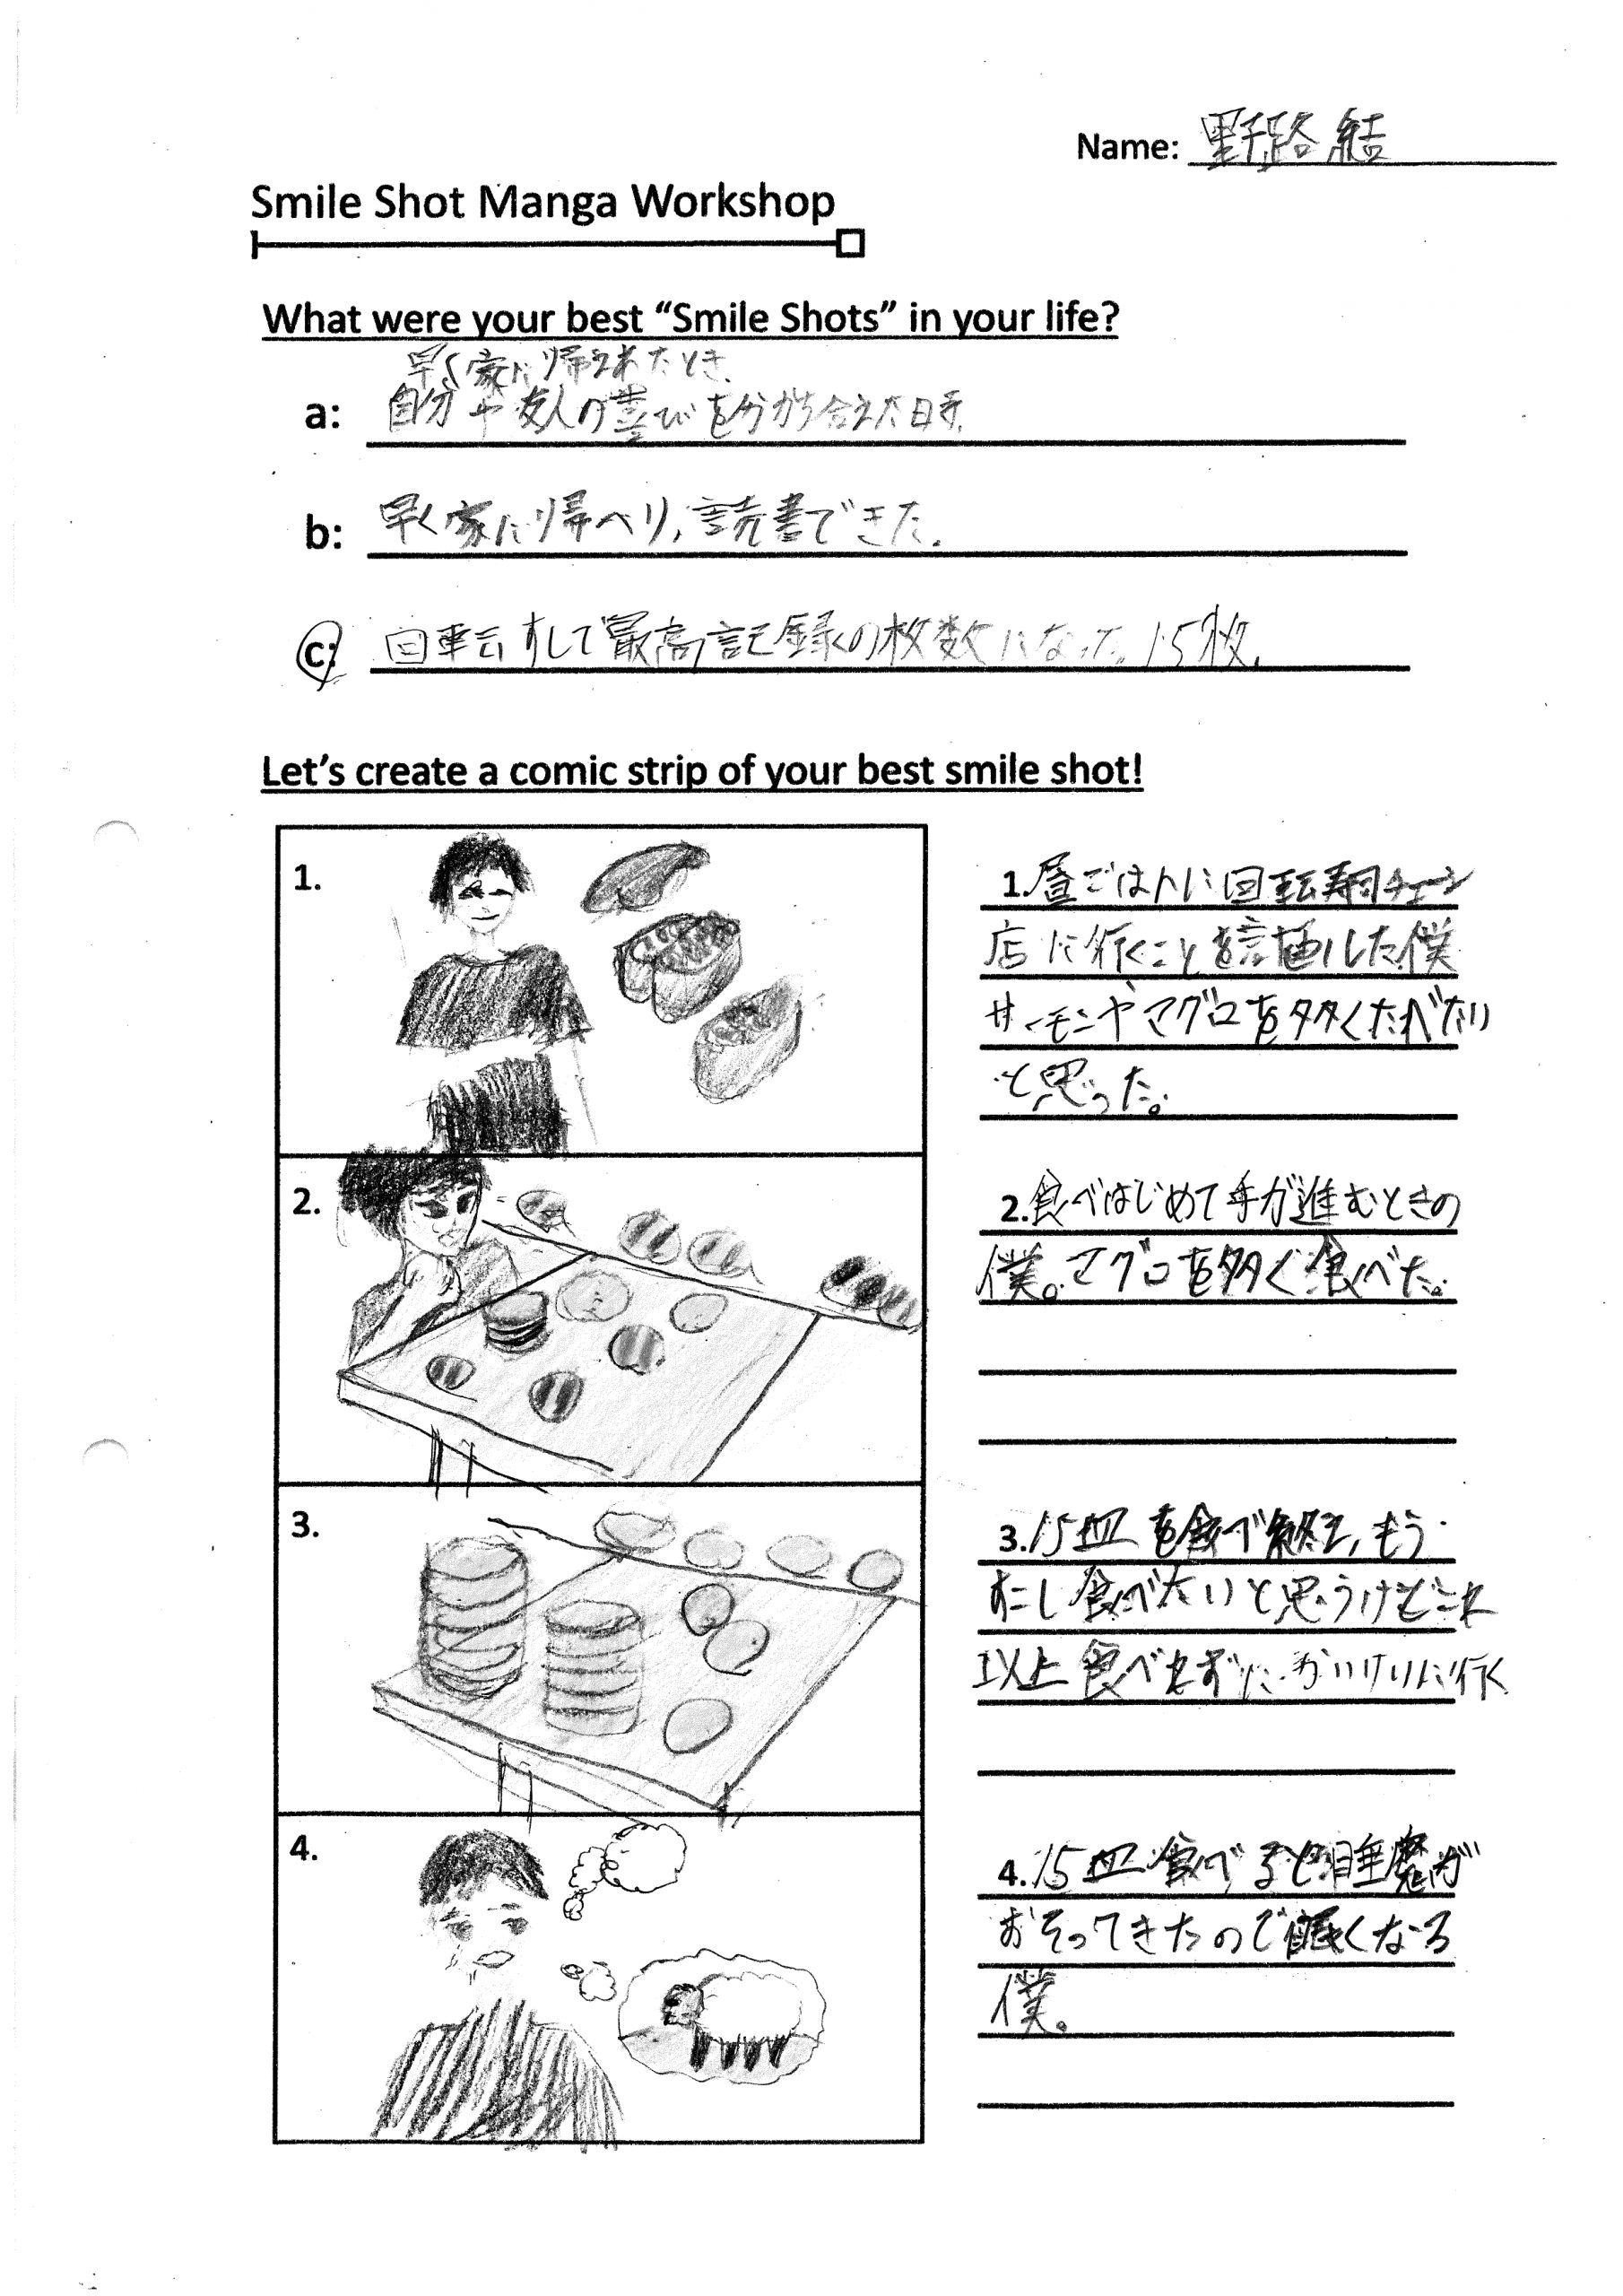 Name: 野路 結
Smile Shot Manga Workshop
What were your best “Smile Shots” in your life?
早く家に帰えれたとき
a: 自分や友人の喜びを分かち合えた時.
b: 早く家に帰へり、読書できた。
c: 回転すしで最高記録の枚数になった。15枚.
Let’s create a comic strip of your best smile shot!
1.
1.昼ごはんに回転寿司チェーン
店に行くことを計画した僕
サーモンやマグロを多くたべたい
と思った。
2.
2.食べはじめて手が進むときの
僕。マグロを多く食べた。
3.
3.15皿を食べ終え、もう
すこし食べたいと思うけどこれ
以上食べれずにかいけいに行く
4.
4.15皿食べると睡魔が
おそってきたので眠くなる
僕。